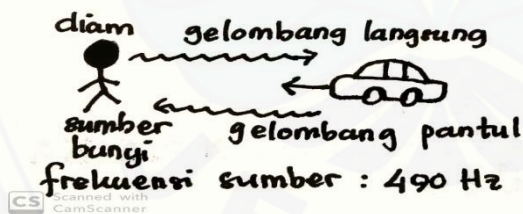 diam
gelombang langsung
sumber
bunyi
gelombang pantul
frekuensi sumber : 490 Hz
CS Scanned with
CamScanner